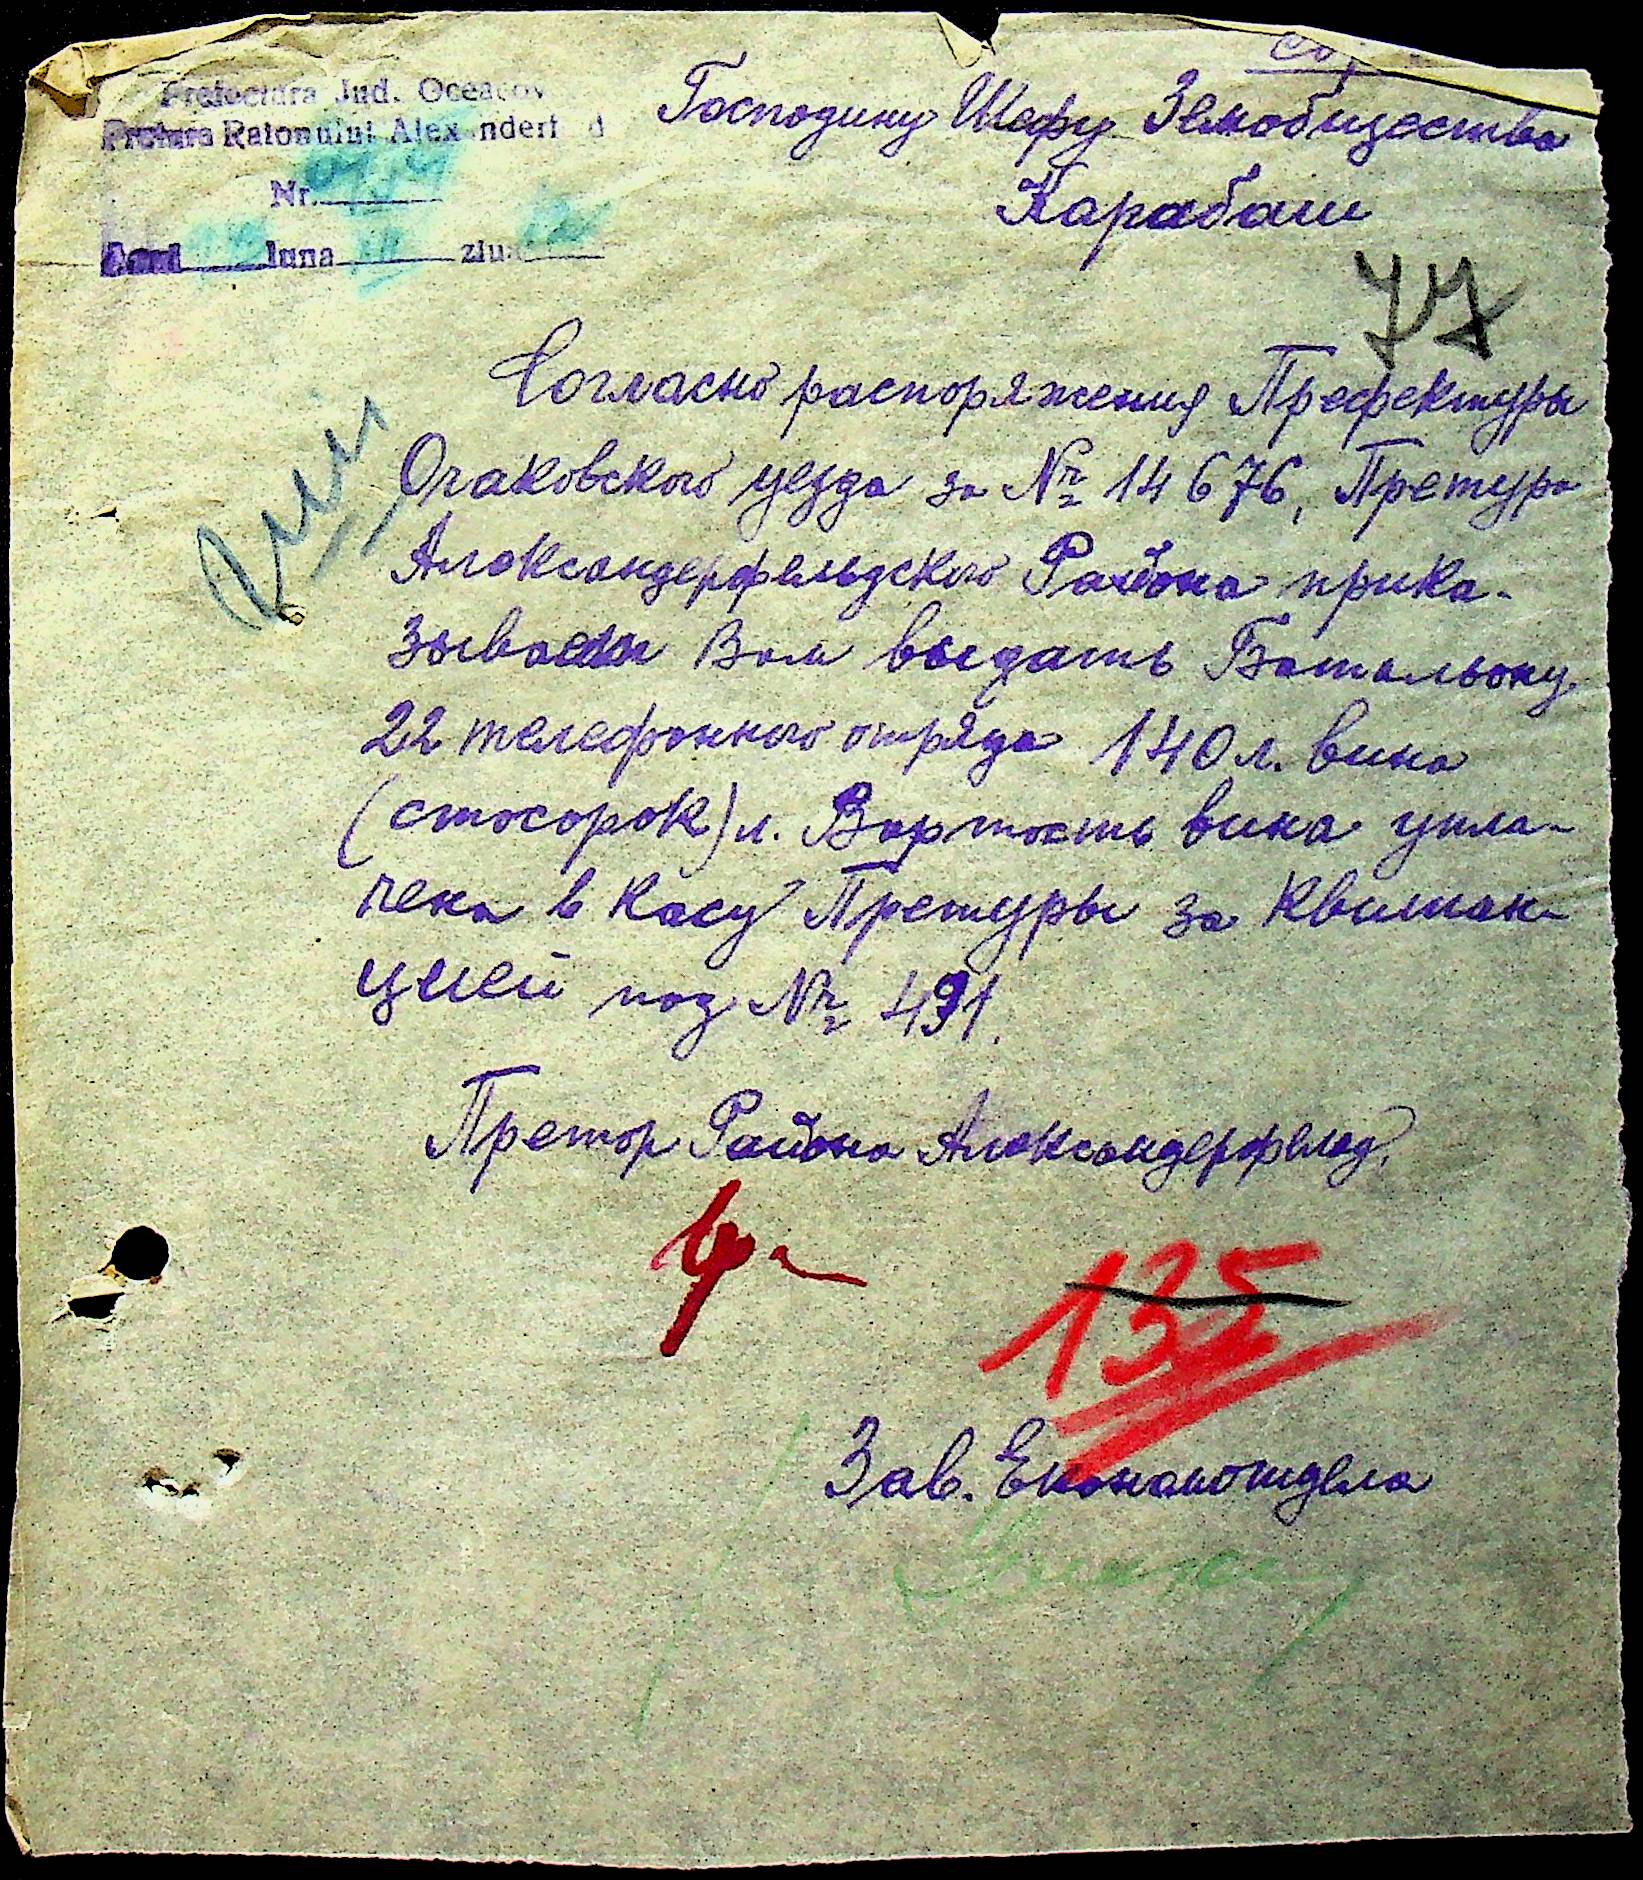 Prefectura Jud. Oceacov
Pretura Raionului Alexanderfeld
Nr.
Anul luna ziua
Господину Шефу Земобщества
Карабаш
77
Согласно распоряжения Префектуры
Очаковского уезда за № 14676, Претура
Александерфельдского Района прика-
зывает Вам выдать Батальону
22 телефонного отряда 140 л. вина
(стосорок) л. Вартость вина упла-
чена в касу Претуры за квитан-
цией под № 491.
Претор Района Александерфельд.
135
Зав. Економотдела